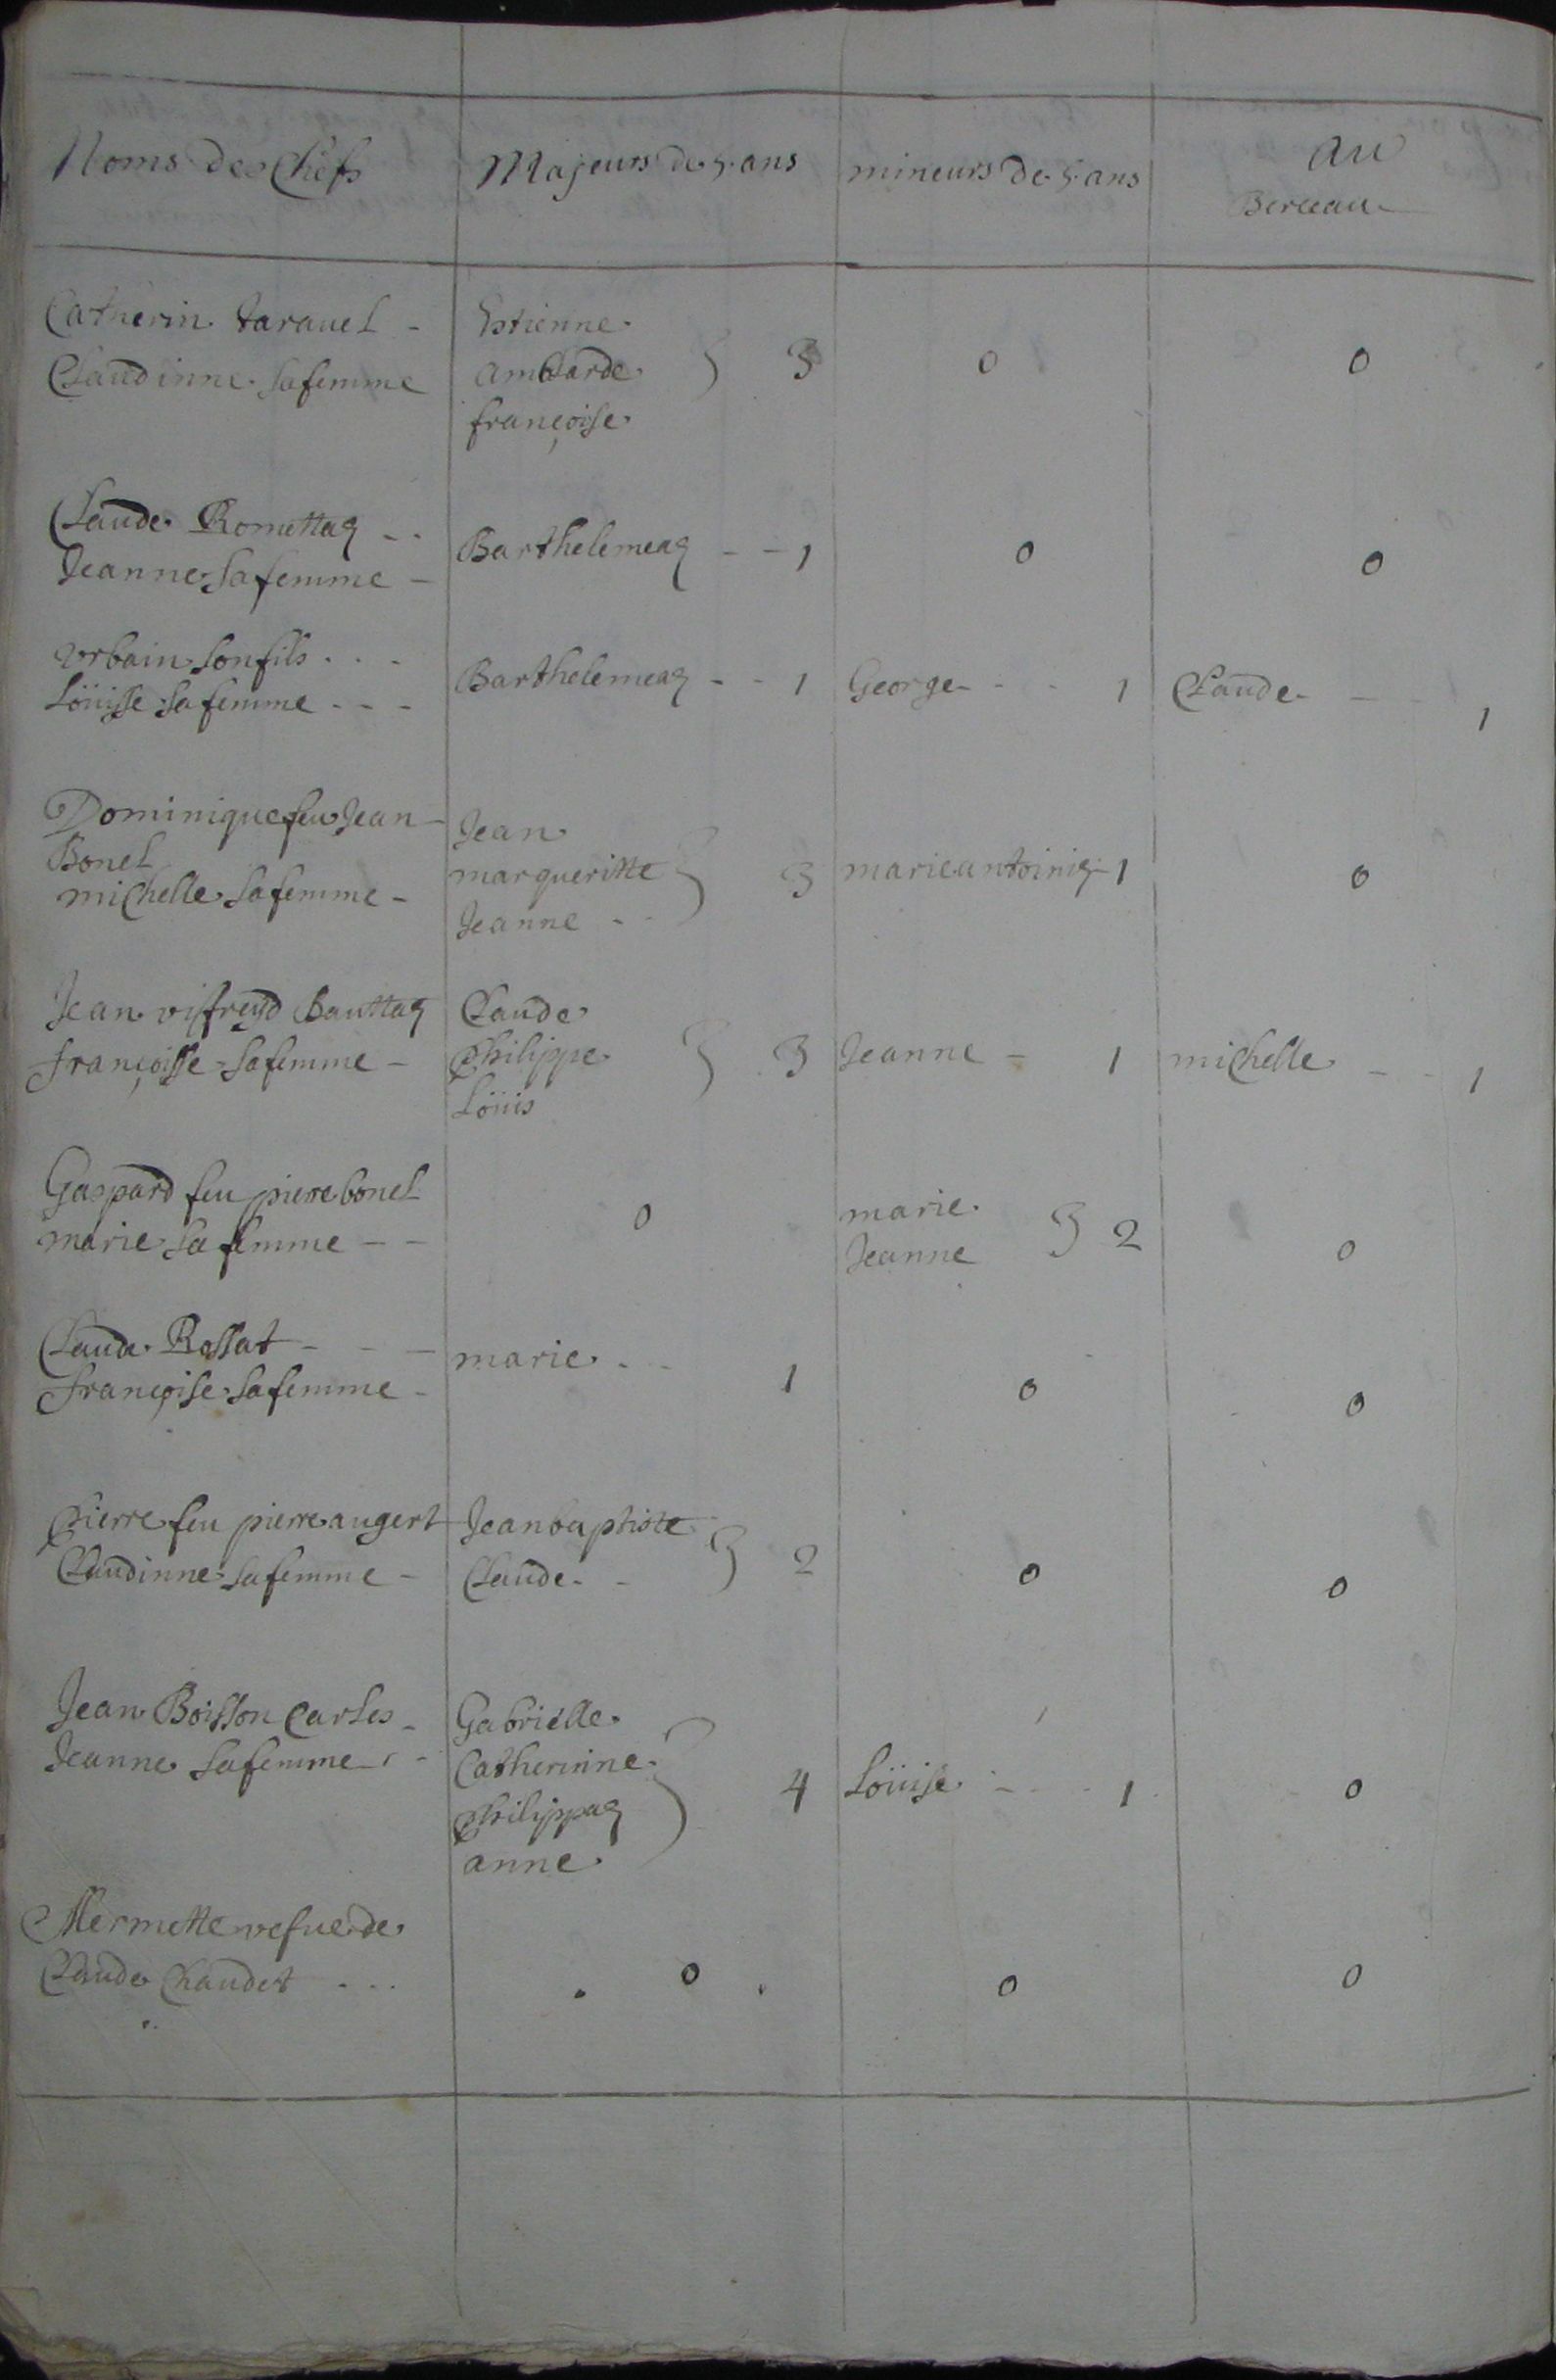 Noms des Chefs
Majeurs de 5. ans
mineurs de 5. ans
au
Berceau
Catherin taravel -
Claudinne sa femme
Estienne
amblarde } 3
françoise
0
0
Claude Romettaz - -
Jeanne sa femme -
Barthelemeaz - - 1
0
0
vrbain son fils . . .
Loüisse sa femme - - -
Barthelemeaz - - 1
George - - - 1
Claude - - - 1
Dominique feu Jean -
Bonel
michelle sa femme -
Jean
margueritte } 3
Jeanne - -
marie antoiniaz - 1
0
Jean vifreyd Bauttaz
françoisse sa femme -
Claude
Philippe } 3
Loüis
Jeanne - 1
michelle - - 1
Gaspard feu pierre bonel
marie sa femme - -
0
marie
Jeanne } 2
0
Claude Rossat - - -
françoise sa femme -
marie - - 1
0
0
Pierre feu pierre augert
Claudinne sa femme -
Jean baptiste
Claude - - } 2
0
0
Jean Boisson Carles -
Jeanne sa femme - -
Gabrielle
Catherinne
Philippaz } 4
anne
Loüise - - 1
0
Mermette vefue de
Claude Chaudet - - -
0
0
0